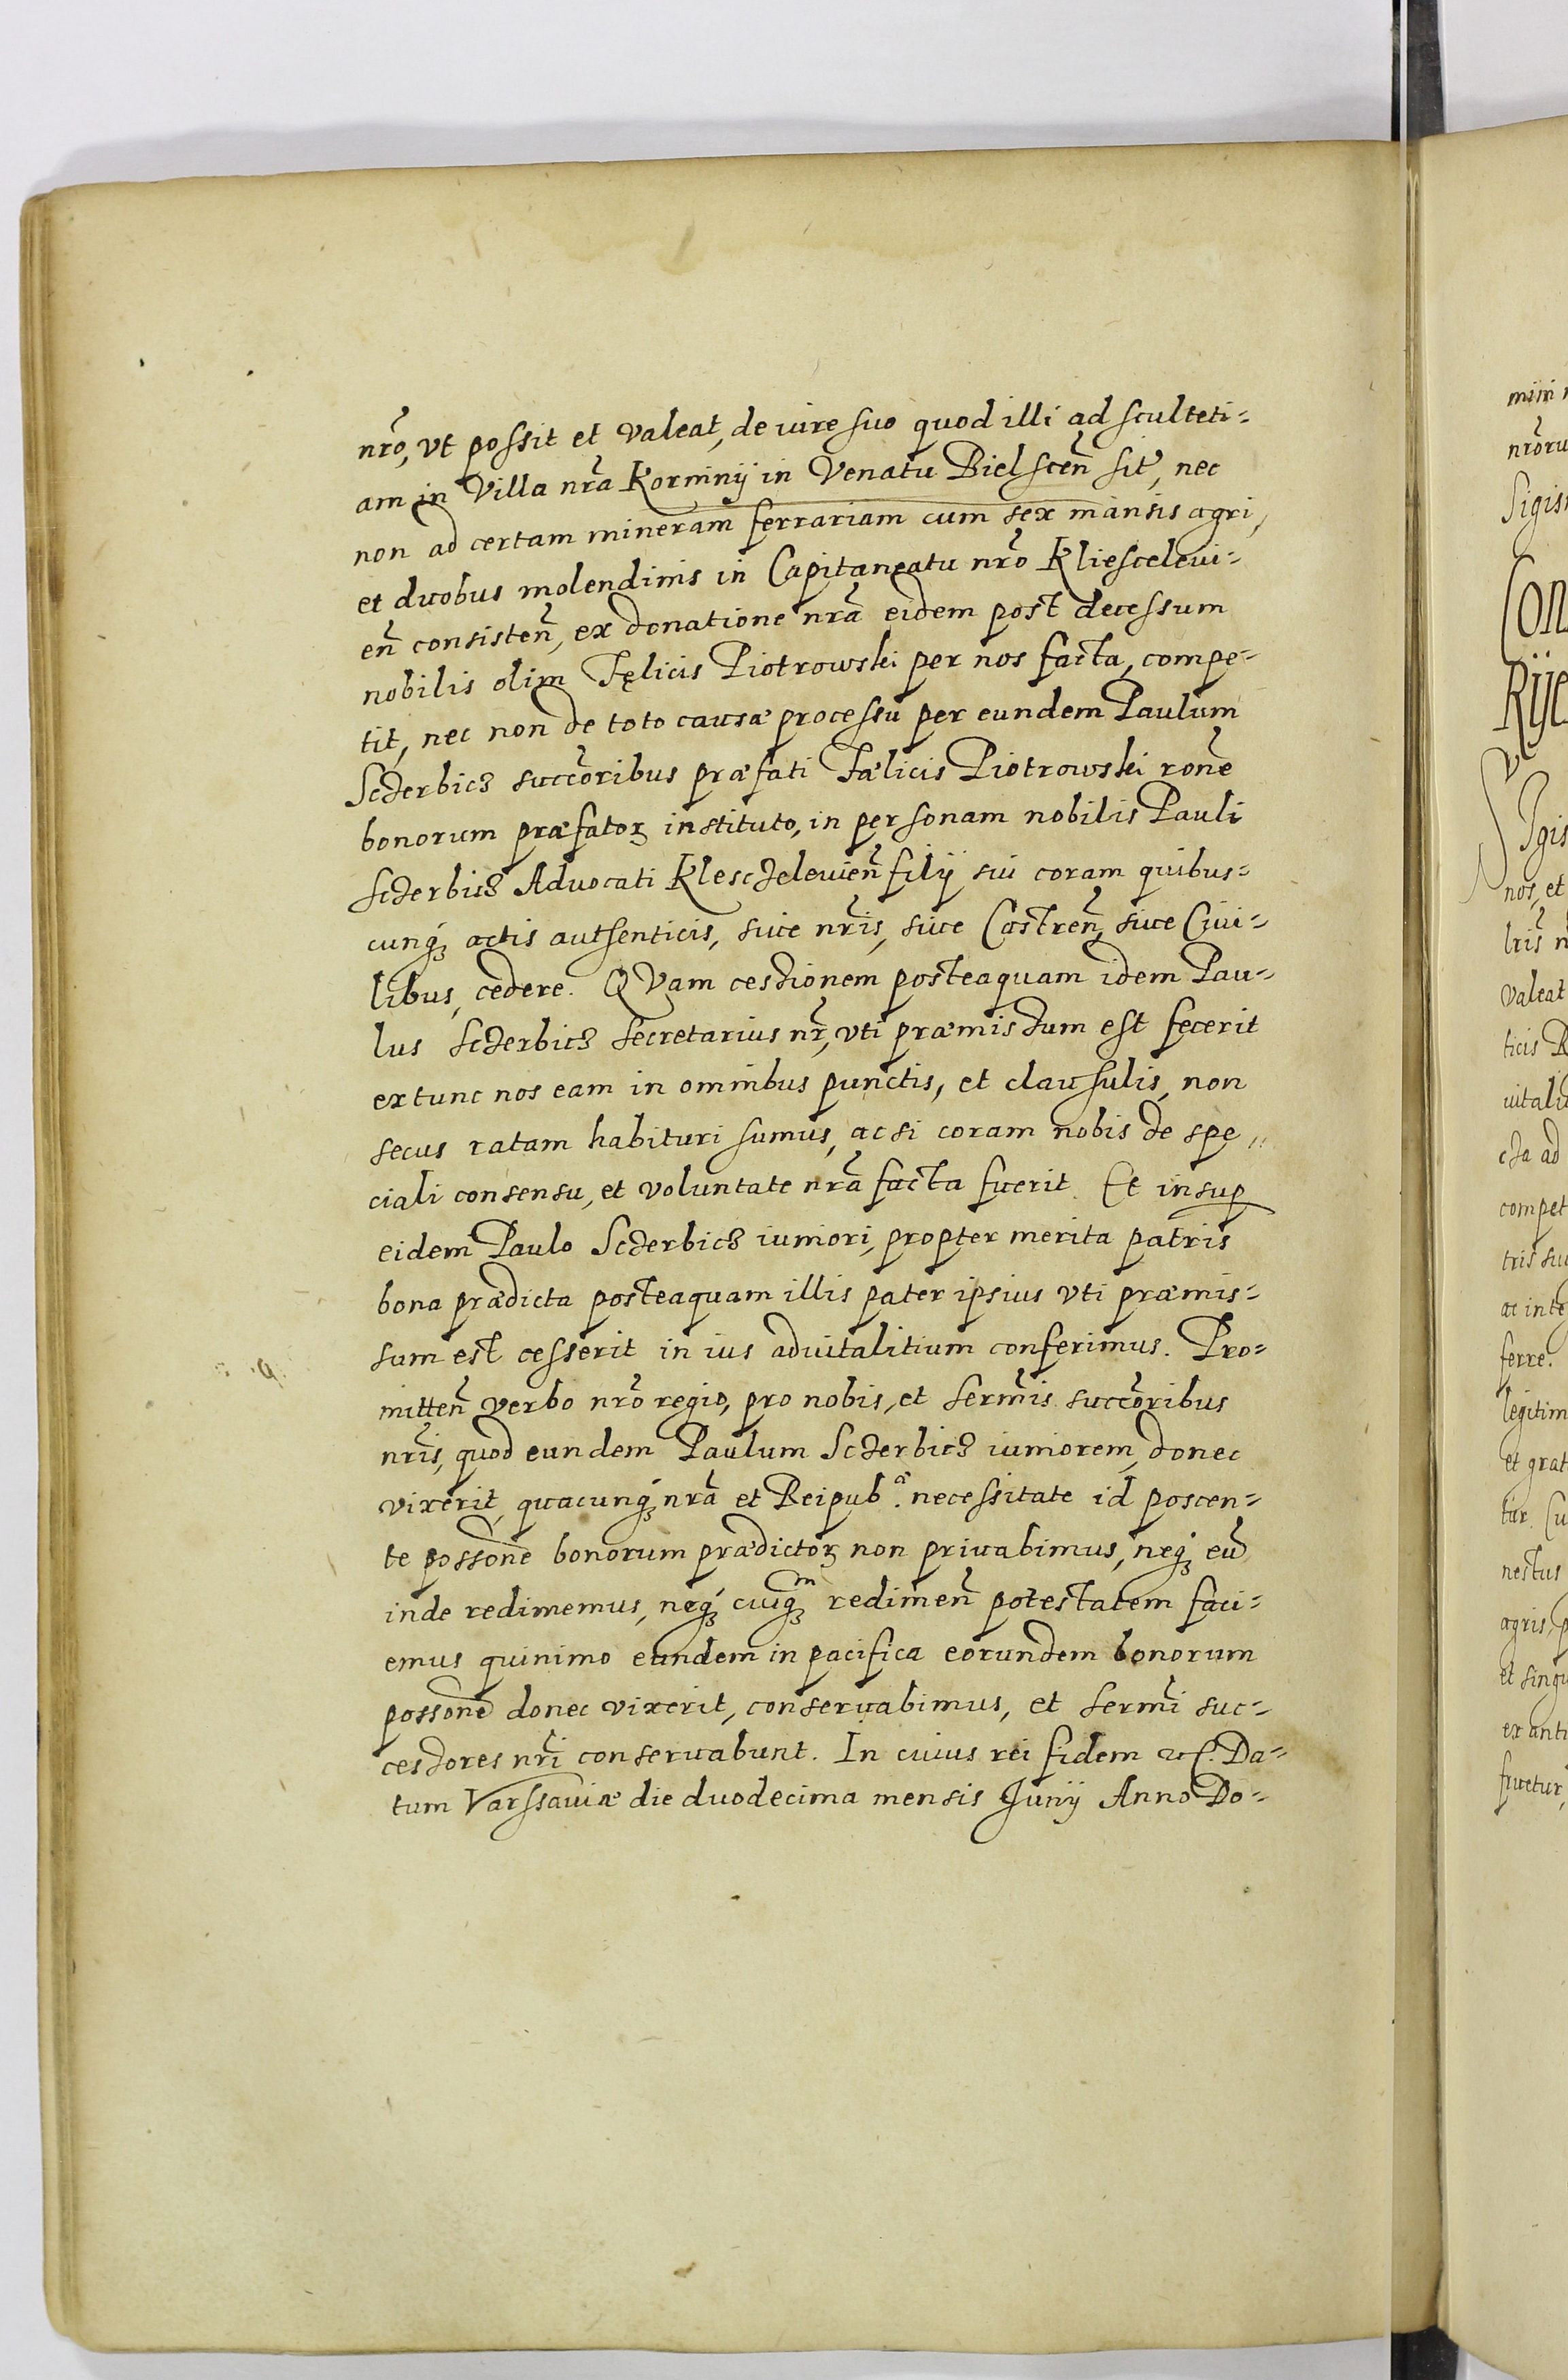 nr̃o, vt possit et valeat, de iure suo quod illi ad sculteti=
am in Villa nr̃a Korninÿ in Venatu Bielscen̄ sit, nec
non ad certam mineram ferrariam cum sex mansis agri,
et duobus molendinis in Capitaneatu nr̃o Kliescelevi=
en̄ consisten̄, ex donatione nr̃a eidem post decessum
nobilis olim Fęlicis Piotrowski per nos facta, compe=
tit, nec non de toto causæ processu per eundem Paulum
Sczerbicz succ̃oribus præfati Fælicis Piotrowski rõne
bonorum præfatoꝝ instituto, in personam nobilis Pauli
Sczerbicz Advocati Klesczelevien̄ filÿ sui coram quibus=
cunqꝫ actis autsenticis, siue nr̃is, siue Castren̄, siue Ciui=
libus, cedere. QVam cessionem posteaquam idem Pau=
lus Sczerbicz Secretarius nr̃, vti præmissum est fecerit
ex tunc nos eam in omnibus punctis, et clausulis, non
secus ratam habituri sumus, ac si coram nobis de spe„
ciali consensu, et voluntate nr̃a facta fuerit. Et insuꝑ
eidem Paulo Sczerbicz iuniori, propter merita patris
bona prædicta posteaquam illis pater ipsius vti præmis=
sum est cesserit in ius aduitalitium conferimus. Pro=
mitten̄ verbo nr̃o regio, pro nobis, et Serm̃is succ̃oribus
nr̃is, quod eundem Paulum Sczerbicz iuniorem, donec
vixerit, quacunqꝫ nr̃a et Reipub.ᵃ necessitate id poscen=
te possõne bonorum prædictoꝝ non priuabimus, neqꝫ eũ
inde redimemus, neqꝫ cuiqꝫᵐ redimen̄ potestatem faci=
emus quinimo eundem in pacifica eorundem bonorum
possõne donec vixerit, conseruabimus, et Serm̃i suc=
cessores nr̃i conseruabunt. In cuius rei fidem etc. Da=
tum Varssauiæ die duodecima mensis Junÿ Anno Do=